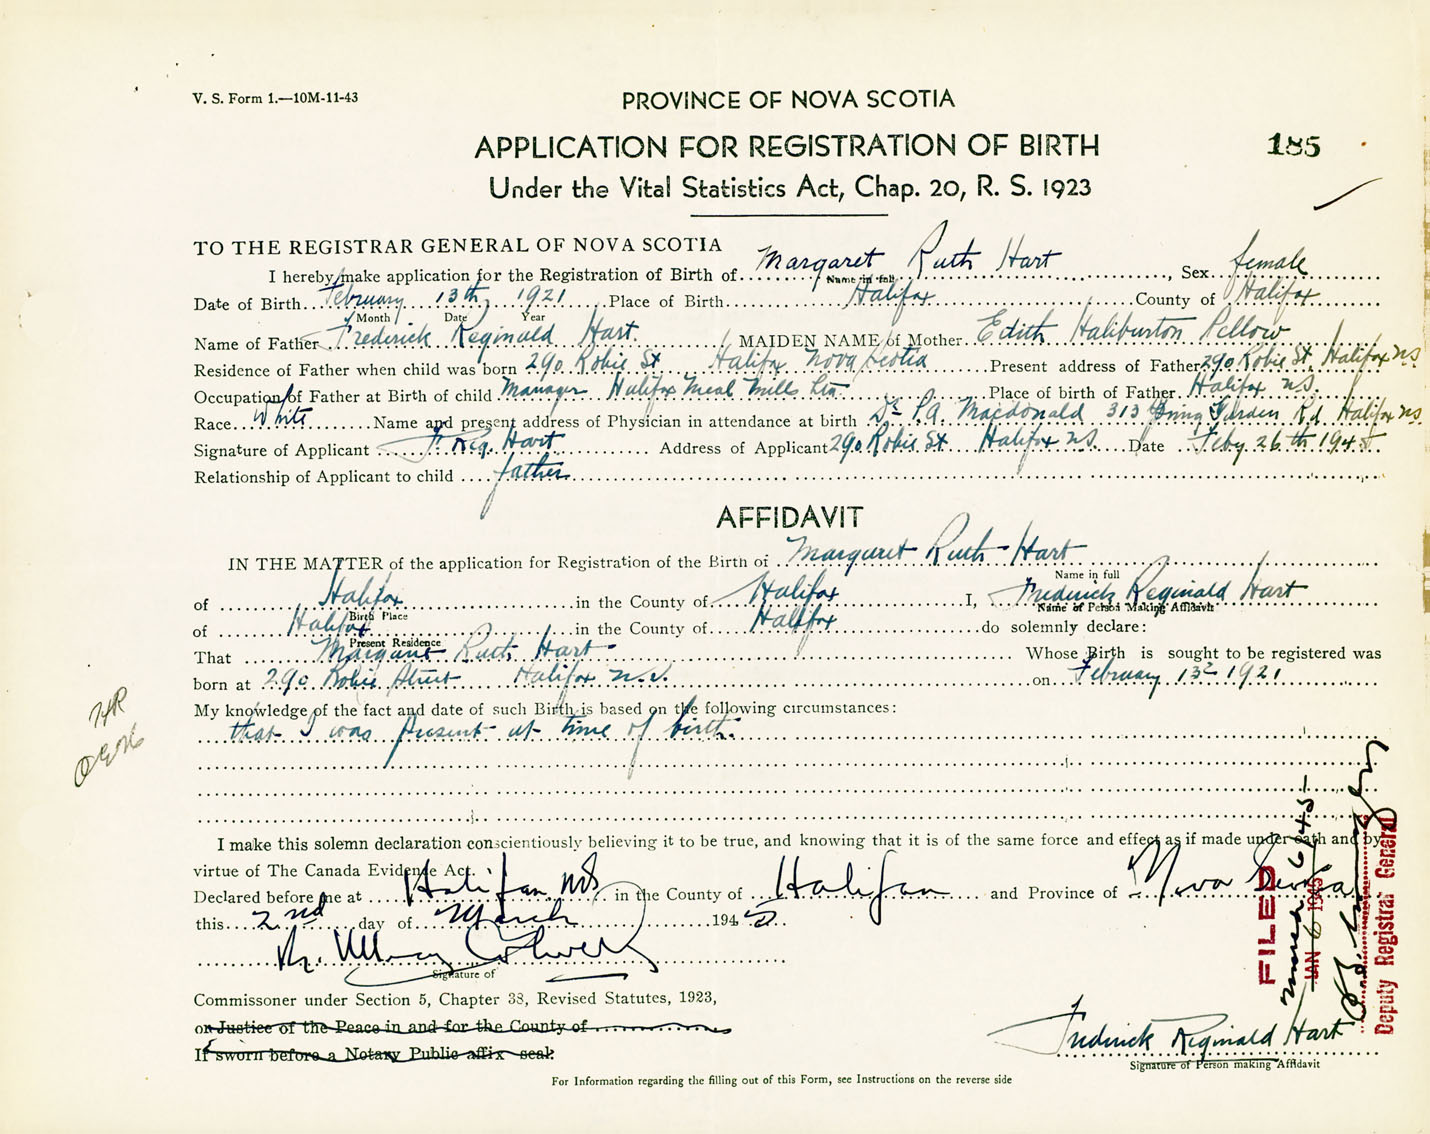 V. S. Form 1.—10M-11-43
PROVINCE OF NOVA SCOTIA
APPLICATION FOR REGISTRATION OF BIRTH
185
Under the Vital Statistics Act, Chap. 20, R. S. 1923
TO THE REGISTRAR GENERAL OF NOVA SCOTIA
I hereby make application for the Registration of Birth of Margaret Ruth Hart, Sex female
Name in full
Date of Birth February 13th, 1921 Place of Birth Halifax County of Halifax
Month Date Year
Name of Father Frederick Reginald Hart MAIDEN NAME of Mother Edith Haliburton Pellow
Residence of Father when child was born 290 Robie St Halifax Nova Scotia Present address of Father 290 Robie St Halifax NS.
Occupation of Father at Birth of child Manager Halifax Meal Mills Ltd Place of birth of Father Halifax NS.
Race White Name and present address of Physician in attendance at birth Dr P.A. Macdonald 313 Spring Garden Rd Halifax NS.
Signature of Applicant F. Reg. Hart Address of Applicant 290 Robie St Halifax NS. Date Feby 26th 1945
Relationship of Applicant to child father
AFFIDAVIT
IN THE MATTER of the application for Registration of the Birth of Margaret Ruth Hart
Name in full
of Halifax in the County of Halifax I, Frederick Reginald Hart
Birth Place Name of Person Making Affidavit
of Halifax in the County of Halifax do solemnly declare:
Present Residence
That Margaret Ruth Hart Whose Birth is sought to be registered was
born at 290 Robie Street Halifax N.S. on February 13th 1921
My knowledge of the fact and date of such Birth is based on the following circumstances:
that I was present at time of birth.
I make this solemn declaration conscientiously believing it to be true, and knowing that it is of the same force and effect as if made under oath and by
virtue of The Canada Evidence Act.
Declared before me at Halifax NS in the County of Halifax and Province of Nova Scotia
this 2nd day of March 1945
Signature of
Commissoner under Section 5, Chapter 38, Revised Statutes, 1923,
or Justice of the Peace in and for the County of
If sworn before a Notary Public affix seal.
Frederick Reginald Hart
Signature of Person making Affidavit
For Information regarding the filling out of this Form, see Instructions on the reverse side
FILED
JAN 6 1945
March 6/45
Deputy Registrar General